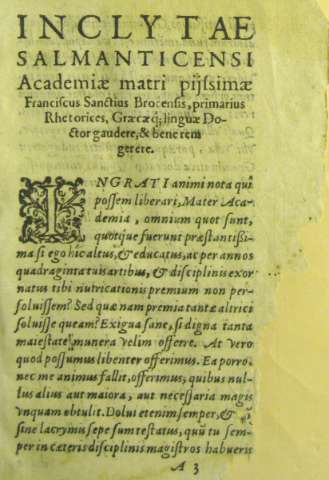 INCLYTAE
SALMANTICENSI
Academiæ matri pijssimæ
Franciscus Sanctius Brocensis, primarius
Rhetorices, Græcæq; linguæ Do-
ctor gaudere, & bene rem
gerere.
INGRATI animi nota qui
possem liberari, Mater Aca-
demia, omnium quot sunt,
quotque fuerunt præstantissi-
ma si ego hic altus, & educatus, ac per annos
quadraginta tuis artibus, & disciplinis exor
natus tibi nutricationis premium non per-
soluissem? Sed quæ nam premia tantæ altrici
soluisse queam? Exigua sane, si digna tanta
maiestate munera velim offerre. At vero
quod possumus libenter offerimus. Ea porro,
nec me animus fallit, offerimus, quibus nul-
lus alius aut maiora, aut necessaria magis
vnquam obtulit. Dolui etenim semper, &
sine lacrymis sepe sum testatus, quū tu sem-
per in cæteris disciplinis magistros habueris
A 3